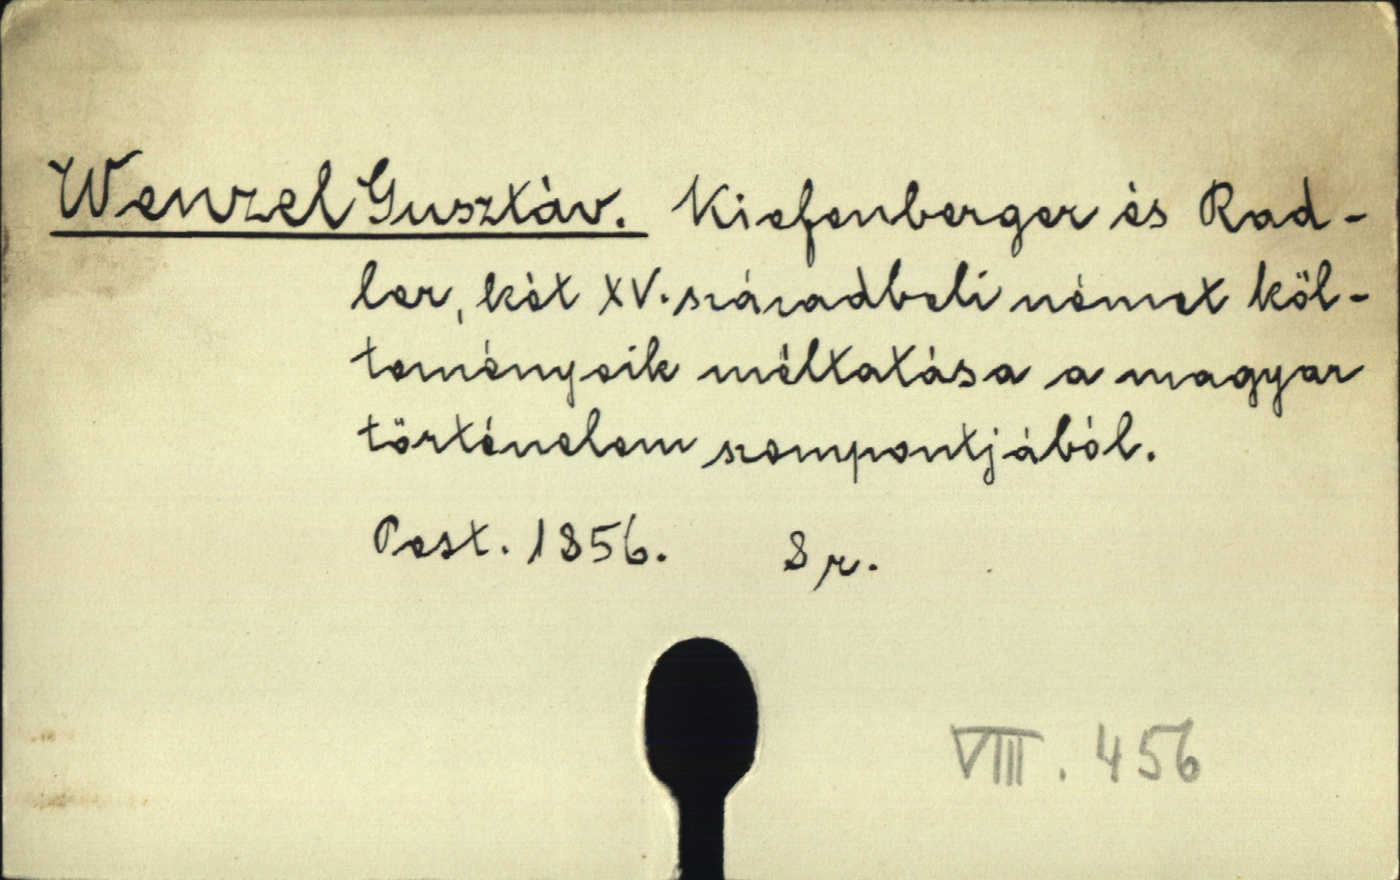 Wenzel Gusztáv. Kiefenberger és Rad-
ler, két XV. századbeli német köl-
teményeik méltatása a magyar
történelem szempontjából.
Pest. 1856. 8 r.
VIII. 456